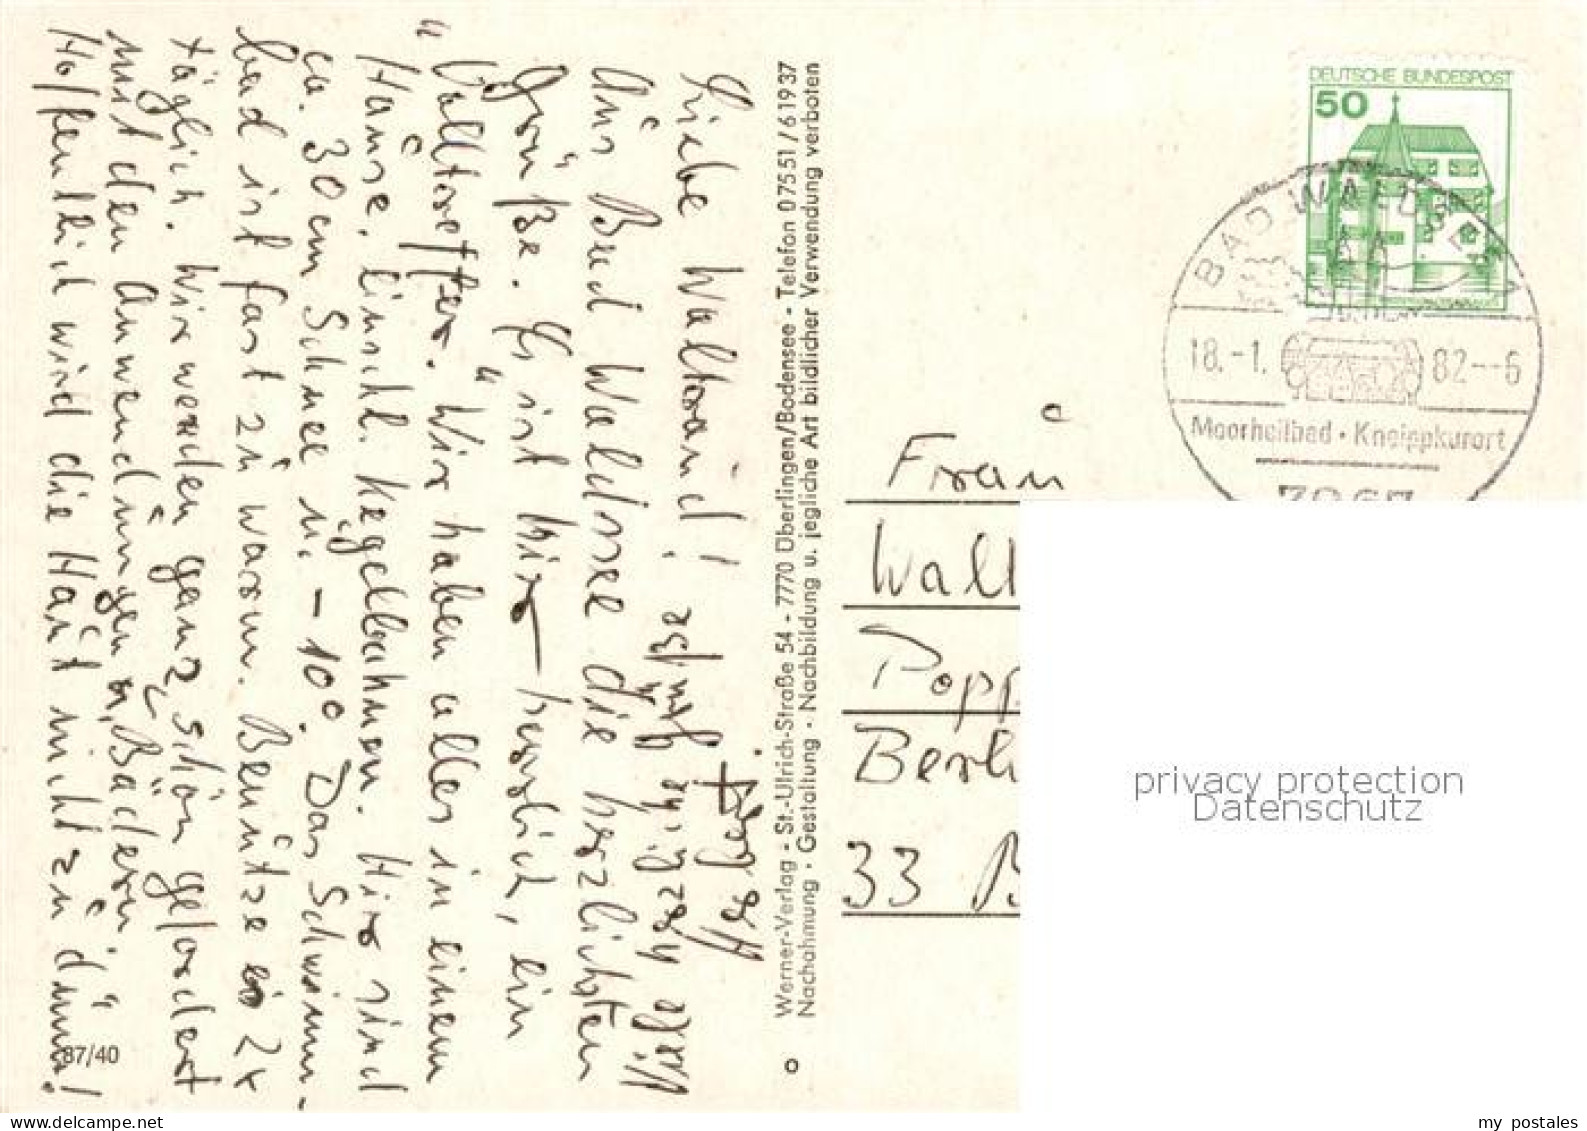 Liebe Waltraud!
Aus Bad Waldsee die herzlichsten
Grüße. Es ist hier herrlich, ein
"Volltreffer". Wir haben alles in einem
Hause, einschl. Kegelbahnen. Hier sind
ca. 30 cm Schnee u. -10°. Das Schwimm-
bad ist fast zu warm. Benütze es 2x
täglich. Wir werden ganz schön gefordert
mit den Anwendungen u. Bädern.
Hoffentlich wird die Haut nicht zu dünn!
Viele herzliche Grüße
87/40
Werner-Verlag - St.-Ulrich-Straße 54 - 7770 Überlingen/Bodensee - Telefon 07551/61937
Nachahmung · Gestaltung · Nachbildung u. jegliche Art bildlicher Verwendung verboten
DEUTSCHE BUNDESPOST
50
BAD WALDSEE
18.-1. 82--6
Moorheilbad · Kneippkurort
Frau
Walt
Popp
Berli
33 B
privacy protection
Datenschutz
www.delcampe.net
my_postales